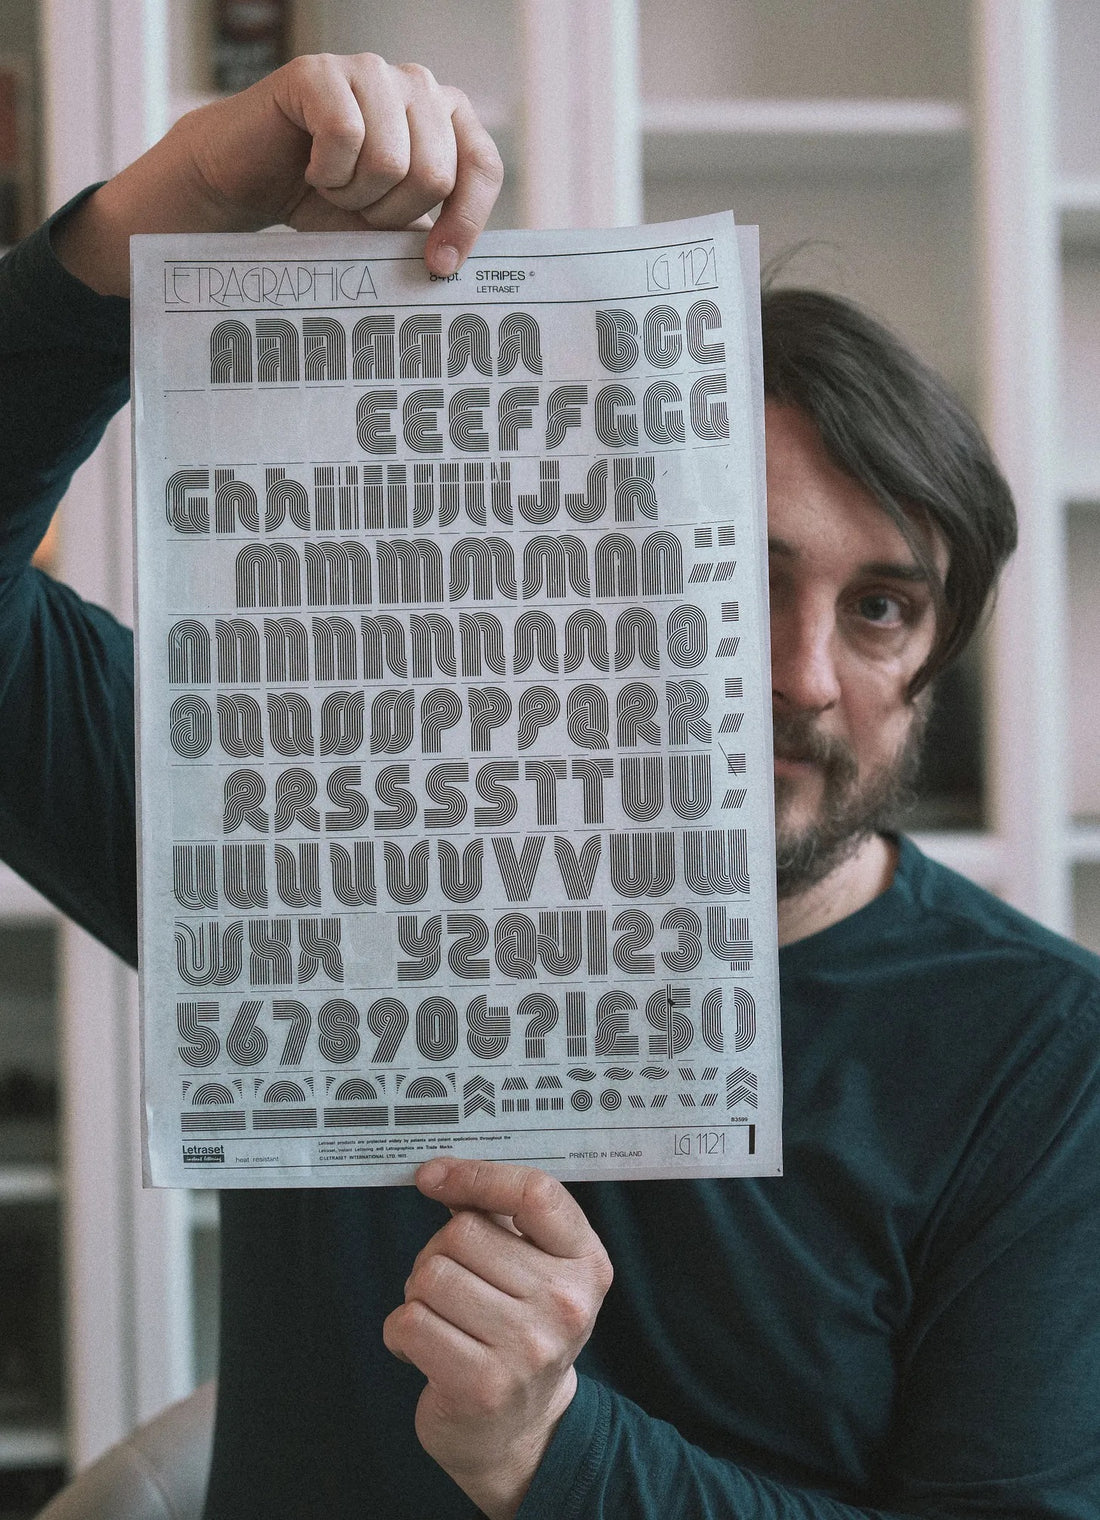 LETRAGRAPHICA 84pt. STRIPES © LG 1121
LETRASET
A A A A A A A B C C
E E E F F G G G
G h h i i i i J J J J J J K
m m m m m m n n " "
n n n n n n n n n n O ; 
O O O O O P P P Q R R ;
R R S S S S T T U U ;
U U U U U U V V W W
W X X Y Z QU 1 2 3 4
5 6 7 8 9 0 & ? ! £ $ ( )
B3599
Letraset
instant lettering
heat resistant
Letraset products are protected widely by patents and patent applications throughout the
Letraset, Instant Lettering and Letragraphica are Trade Marks.
© LETRASET INTERNATIONAL LTD.
PRINTED IN ENGLAND
LG 1121